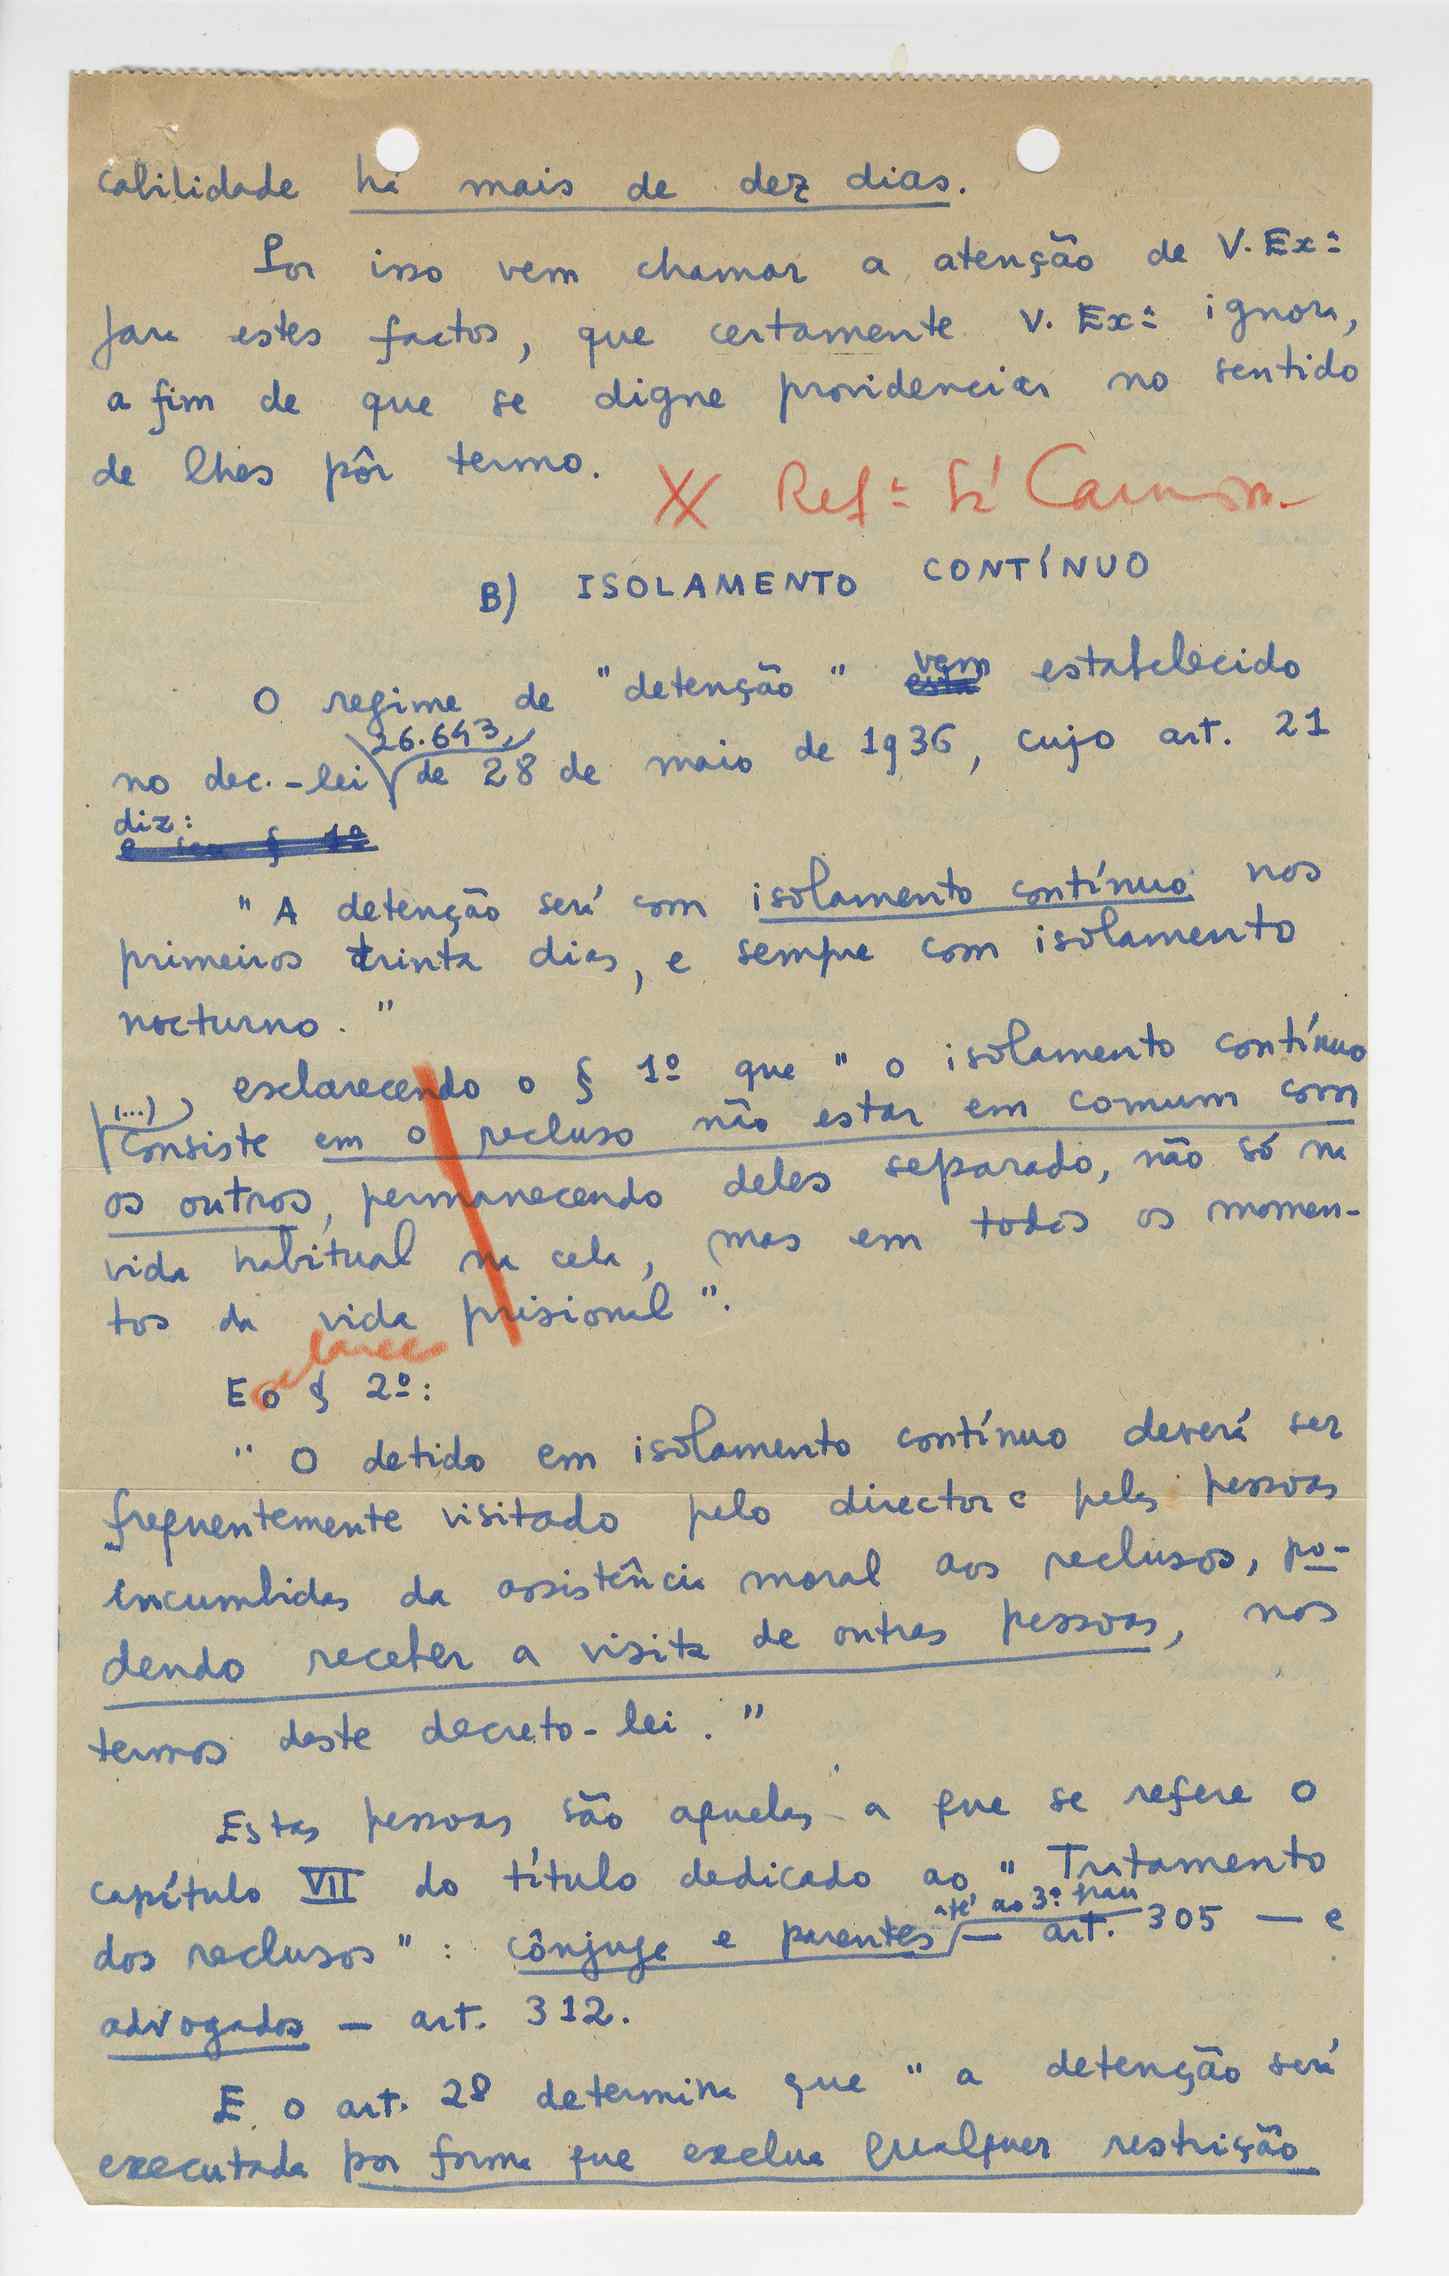 cabilidade há mais de dez dias.
Por isso vem chamar a atenção de V. Exª
para estes factos, que certamente V. Exª ignora,
a fim de que se digne providenciar no sentido
de lhes pôr termo.
XX Refª Sá Carneiro
B) ISOLAMENTO CONTÍNUO
O regime de "detenção" vem estabelecido
no dec.-lei 26.643, de 28 de maio de 1936, cujo art. 21
diz:
e seu § 1º
"A detenção será com isolamento contínuo nos
primeiros trinta dias, e sempre com isolamento
nocturno."
esclarecendo o § 1º que "o isolamento contínuo
(...) consiste em o recluso não estar em comum com
os outros, permanecendo deles separado, não só na
vida habitual na cela, mas em todos os momen-
tos da vida prisional".
E o § 2º:
"O detido em isolamento contínuo deverá ser
frequentemente visitado pelo director e pelas pessoas
encumbidas da assistência moral aos reclusos, po-
dendo receber a visita de outras pessoas, nos
termos deste decreto-lei."
Estas pessoas são aquelas a que se refere o
capítulo VII do título dedicado ao "Tratamento
dos reclusos": cônjuge e parentes até ao 3º grau — art. 305 — e
advogados — art. 312.
E o art. 28 determina que "a detenção será
executada por forma que exclua qualquer restrição